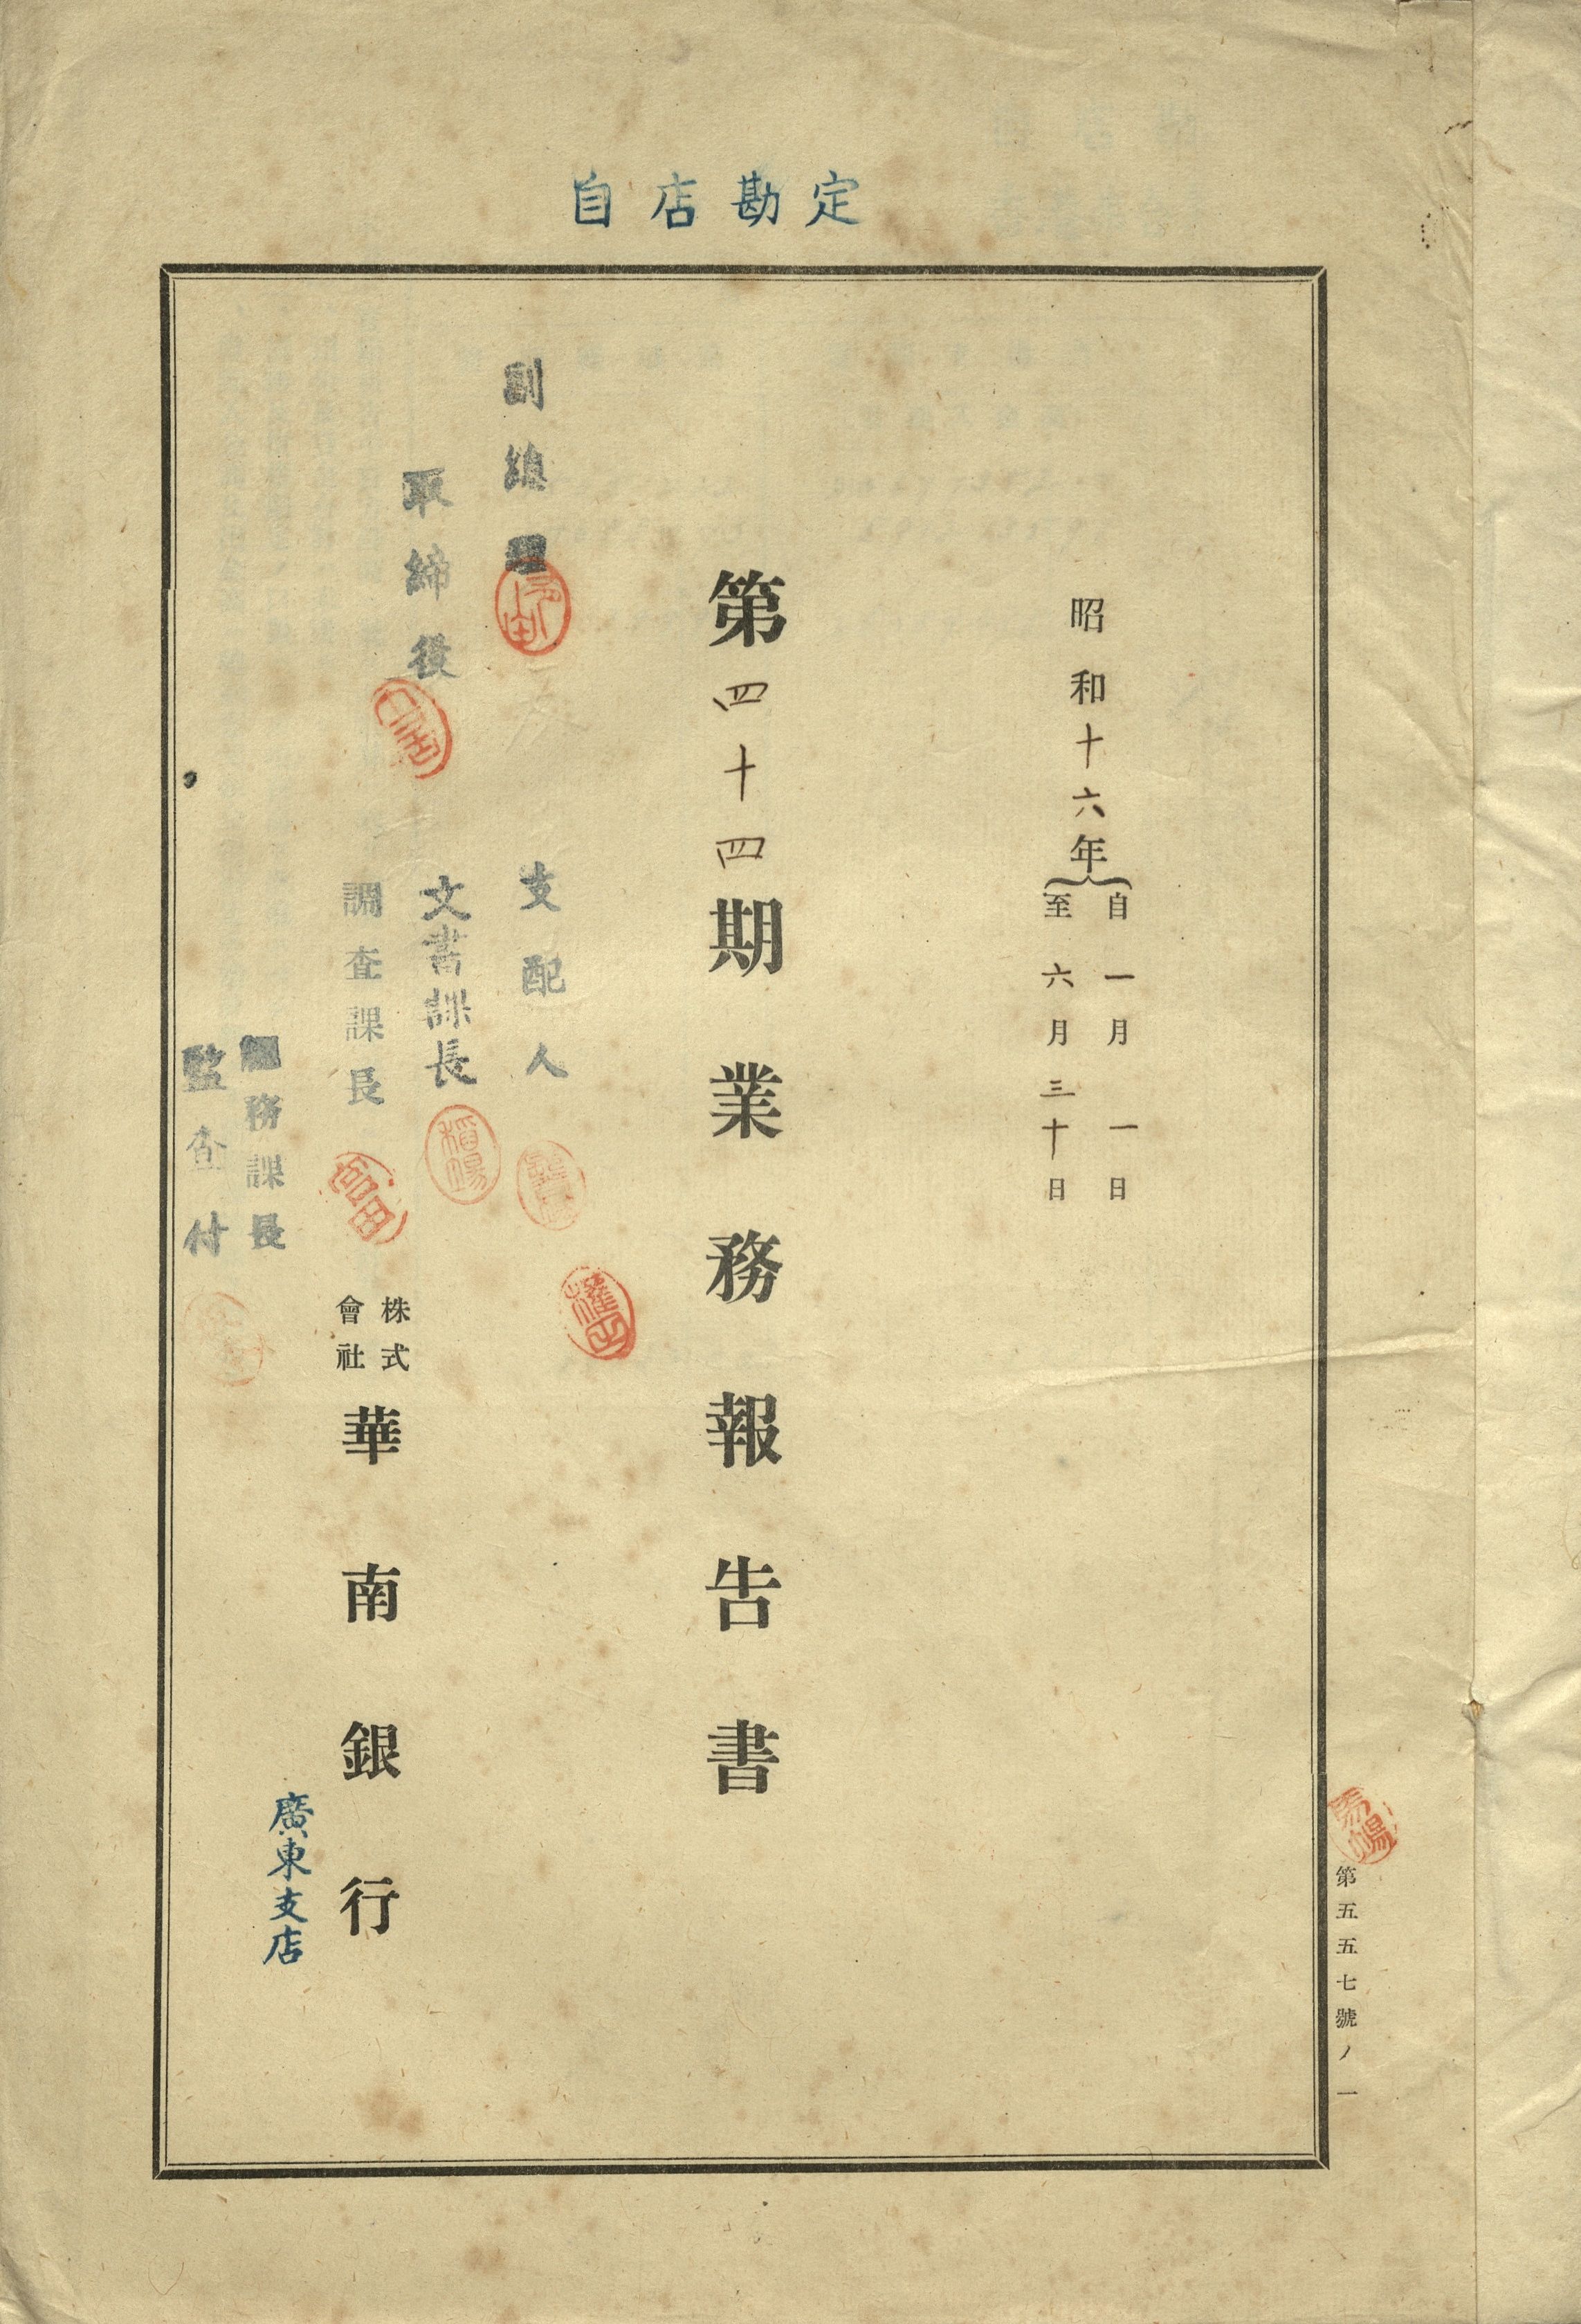 自店勘定
昭和十六年
自一月一日
至六月三十日
第四十四期業務報告書
副總理
取締役
支配人
文書課長
調査課長
務課長
監査付
株式會社華南銀行
廣東支店
第五五七號ノ一